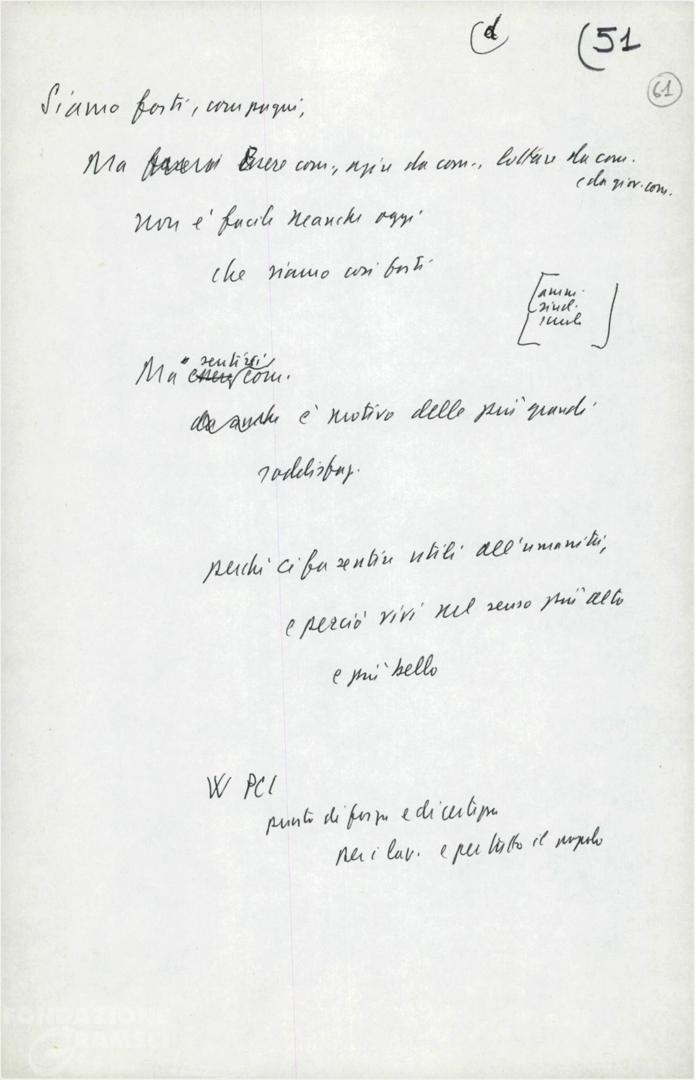 (d
(51
61
Siamo forti, compagni,
Ma essere com., agire da com., lottare da com.
e da giov. com.
non è facile neanche oggi
che siamo così forti
amm.
sind.
Ma sentirsi com.
essere
è motivo delle più grandi
soddisfaz.
perché ci fa sentire utili all'umanità,
e perciò vivi nel senso più alto
e più bello
W PCI
punto di forza e di certezza
per i lav. e per tutto il popolo
FONDAZIONE
GRAMSCI